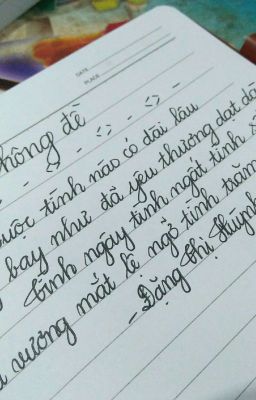 DATE
PLACE
hông đề
- <> - <> - <> -
uộc tình nào có dài lâu
bay như đã yêu thương dạt
tình ngây tình ngất tình
vương mắt lệ ngỡ tình trăm
- Đặng Thị Huỳnh